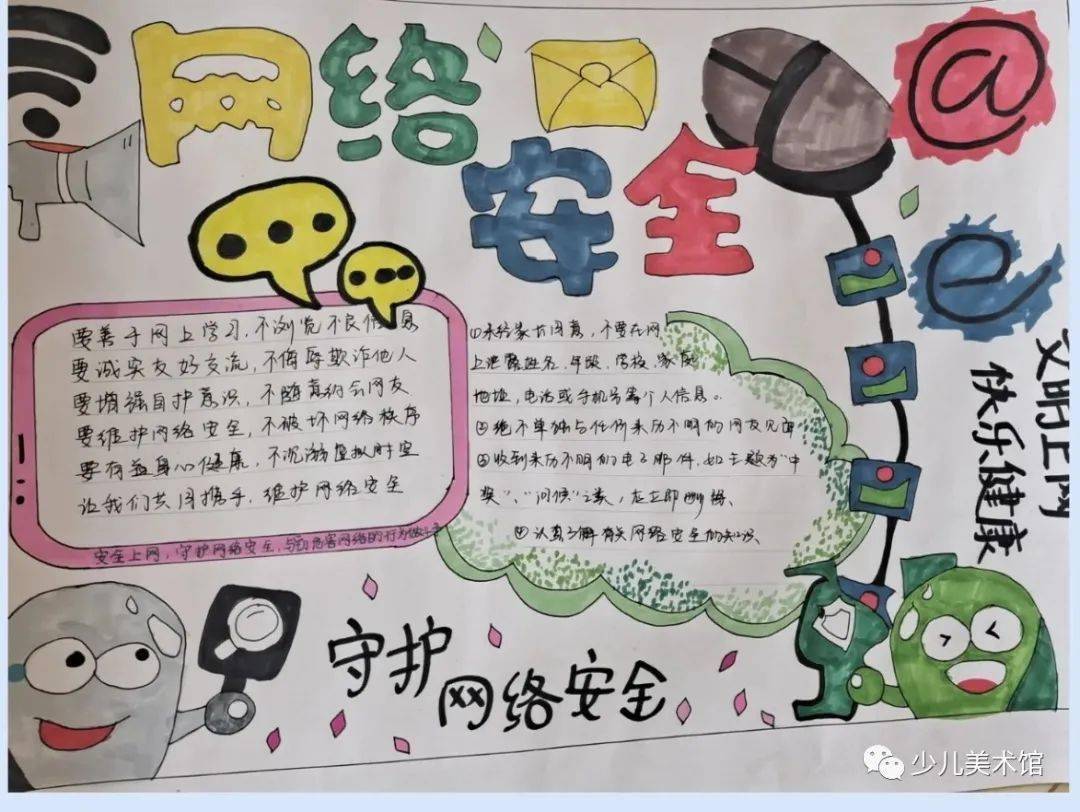 网络
安全
@
@
要善于网上学习,不浏览不良信息
要诚实友好交流,不侮辱欺诈他人
要增强自护意识,不随意约会网友
要维护网络安全,不破坏网络秩序
要有益身心健康,不沉溺虚拟时空
让我们共同携手,维护网络安全
安全上网,守护网络安全,与危害网络的行为做斗争
①未经家长同意,不要在网
上泄露姓名、年龄、学校、家庭
地址,电话或手机号等个人信息。
②绝不单独与任何来历不明的网友见面
③收到来历不明的电子邮件,如主题为“中
奖”、“问候”之类,应立即删除、
④认真了解有关网络安全的知识、
文明上网
快乐健康
守护
网络安全
少儿美术馆